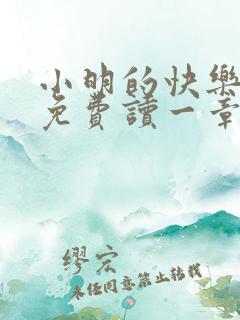 小明的快樂
免費讀一章
繆宏
未經同意禁止轉載